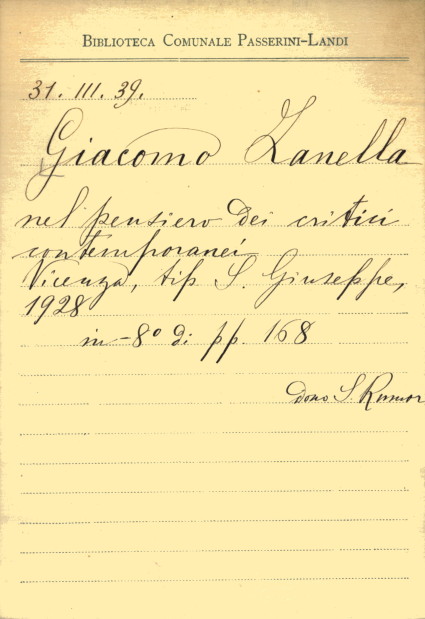 BIBLIOTECA COMUNALE PASSERINI-LANDI
31. III. 39.
Giacomo Zanella
nel pensiero dei critici
contemporanei
Vicenza, tip S. Giuseppe,
1928
in-8º di pp. 168
dono S. Rumor